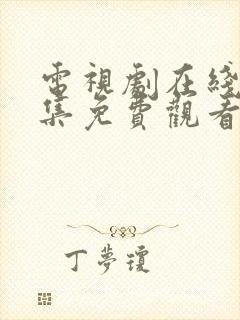 電視劇在綫
集免費觀看
丁夢瓊